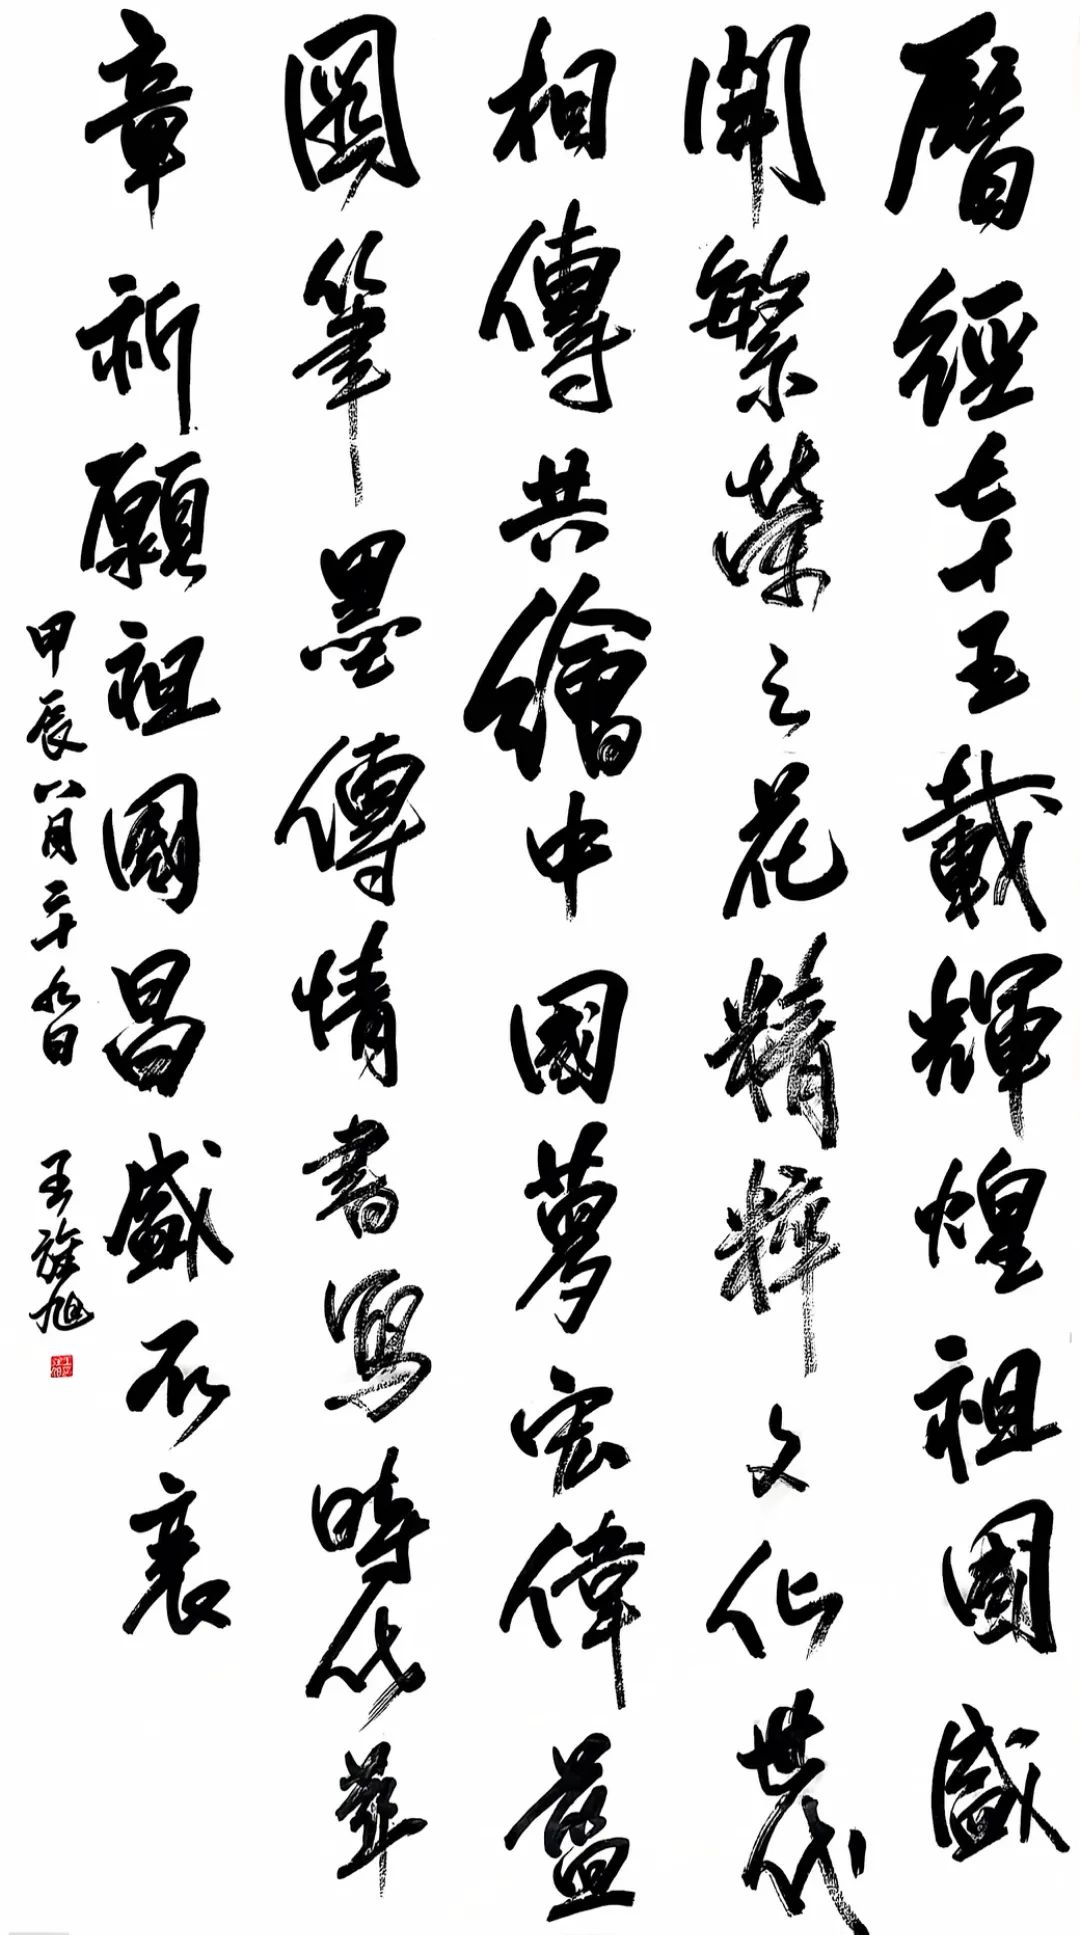 曆經七十五載輝煌祖國盛
開繁榮之花精粹文化世代
相傳共繪中國夢宏偉藍
圖筆墨傳情書寫時代華
章祈願祖國昌盛不衰
甲辰八月二十九日 王旭